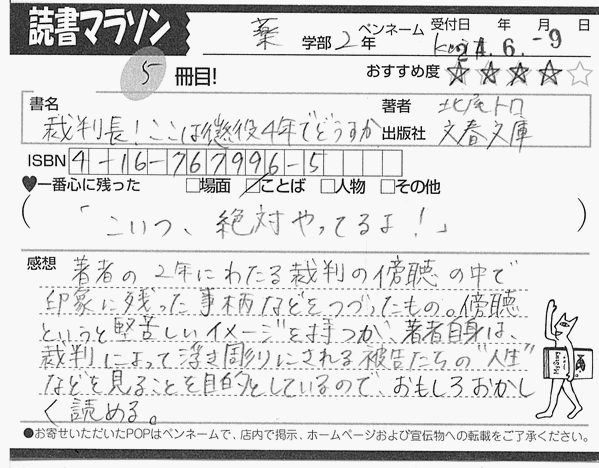 読書マラソン
薬 学部 2 年 ペンネーム 受付日 年 月 日
6. -9
5 冊目! おすすめ度 ★★★★☆
書名 著者 北尾トロ
裁判長!ここは懲役4年でどうすか 出版社 文春文庫
ISBN 4-16-767996-5
♥一番心に残った □場面 ☑ことば □人物 □その他
(「こいつ、絶対やってるよ!」)
感想 著者の2年にわたる裁判の傍聴の中で
印象に残った事柄などをつづったもの。傍聴
というと堅苦しいイメージを持つが、著者自身は、
裁判によって浮き彫りにされる被告たちの"人生"
などを見ることを目的としているので、おもしろおかし
く読める。
Mystery
●お寄せいただいたPOPはペンネームで、店内で掲示、ホームページおよび宣伝物への転載をご了承ください。